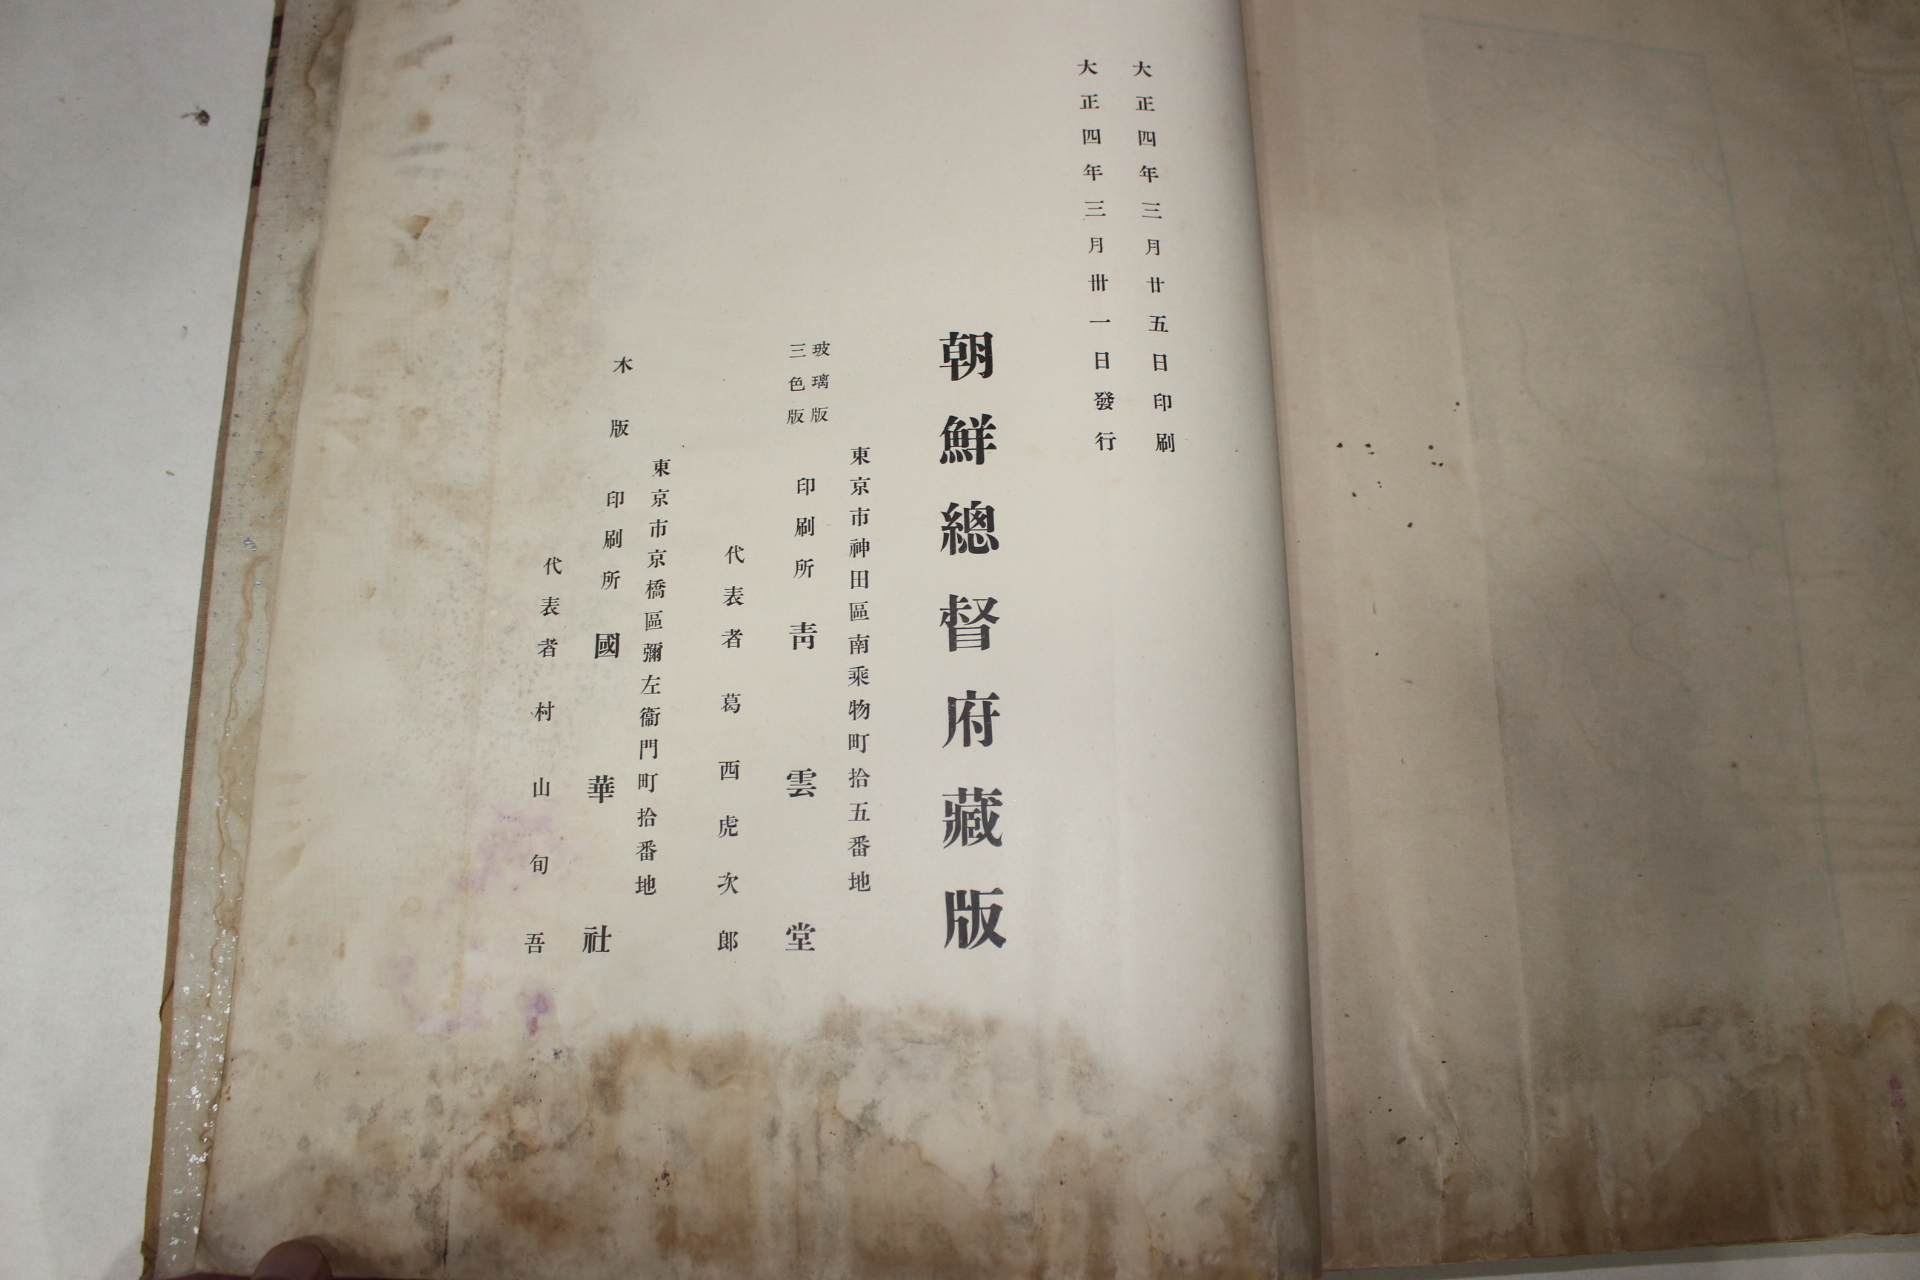 大正四年三月廿五日印刷
大正四年三月卅一日發行
朝鮮總督府藏版
東京市神田區南乘物町拾五番地
玻璃版
三色版
印刷所 靑雲堂
代表者 葛西虎次郎
東京市京橋區彌左衞門町拾番地
木版印刷所 國華社
代表者 村山旬吾